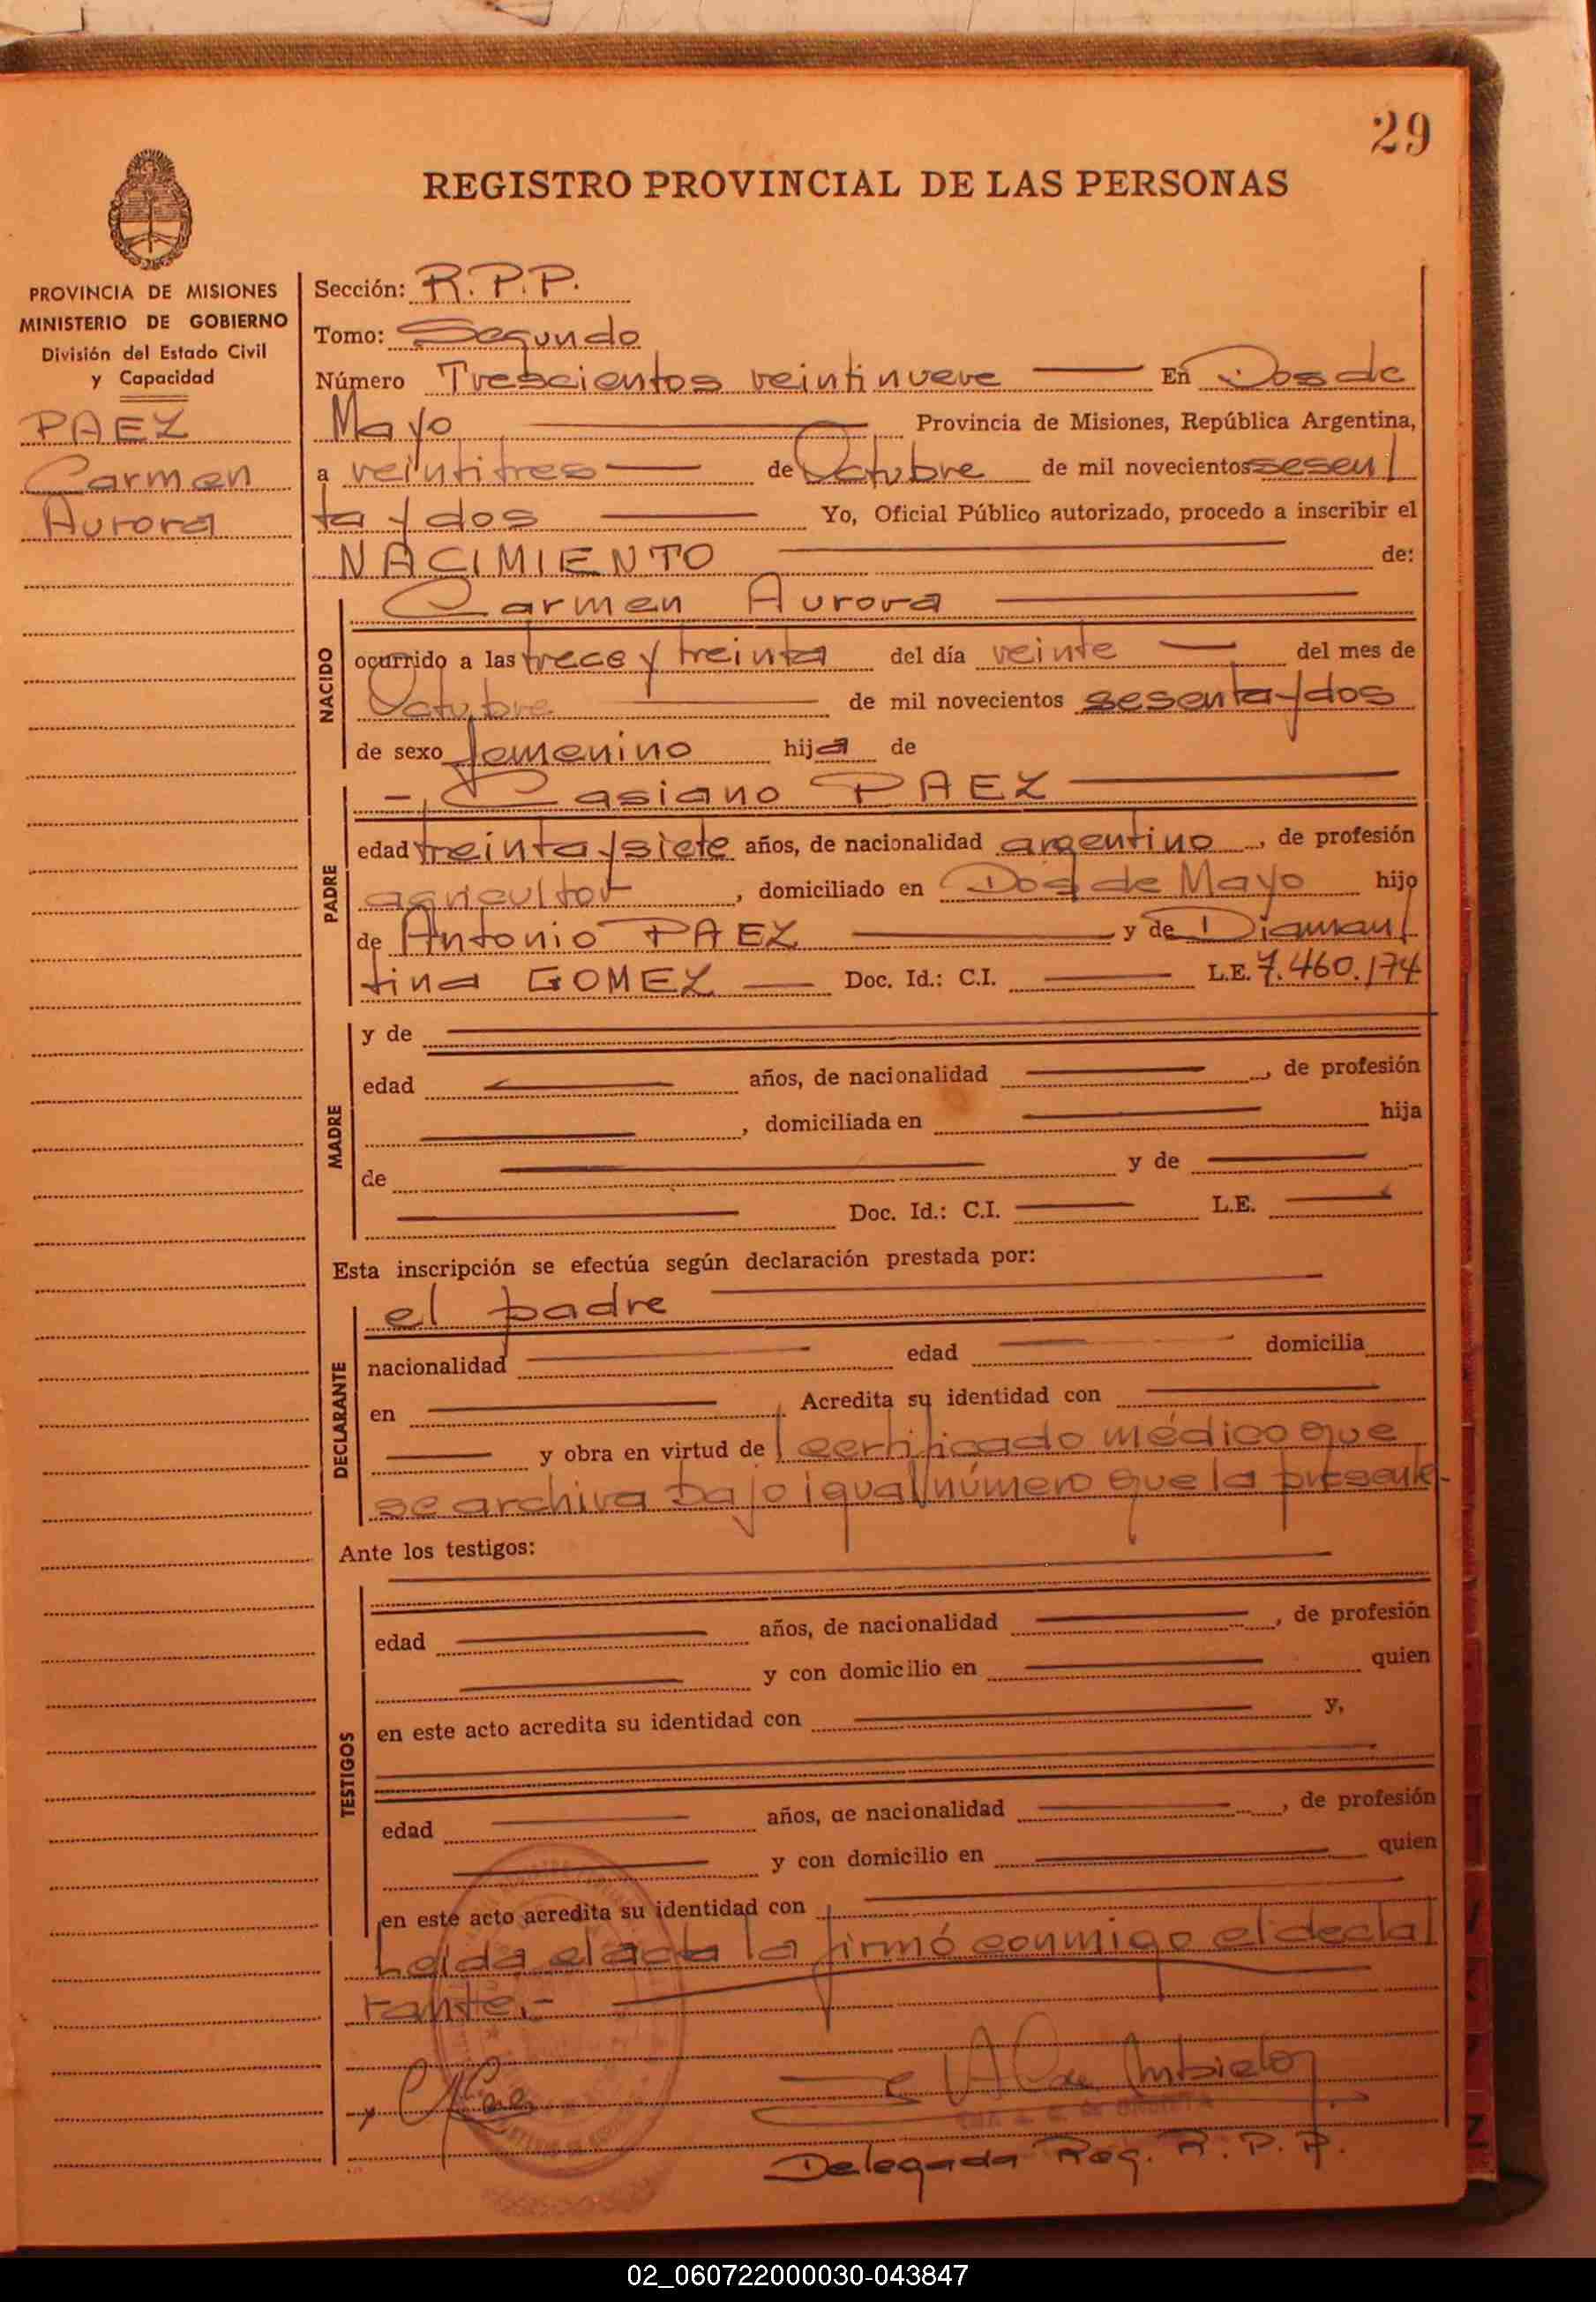 29
REGISTRO PROVINCIAL DE LAS PERSONAS
PROVINCIA DE MISIONES
MINISTERIO DE GOBIERNO
División del Estado Civil
y Capacidad
PAEZ
Carmen
Aurora
Sección: R.P.P.
Tomo: Segundo
Número Trescientos veintinueve En Dos de
Mayo Provincia de Misiones, República Argentina,
a veintitres de Octubre de mil novecientos sesen
ta y dos Yo, Oficial Público autorizado, procedo a inscribir el
NACIMIENTO de:
NACIDO
Carmen Aurora
ocurrido a las trece y treinta del día veinte del mes de
Octubre de mil novecientos sesenta y dos
de sexo femenino hija de
PADRE
Casiano PAEZ
edad treinta y siete años, de nacionalidad argentino, de profesión
agricultor, domiciliado en Dos de Mayo hijo
de Antonio PAEZ y de Diaman
tina GOMEZ Doc. Id.: C.I. L.E. 7.460.174
MADRE
y de
edad años, de nacionalidad , de profesión
, domiciliada en hija
de y de
Doc. Id.: C.I. L.E.
Esta inscripción se efectúa según declaración prestada por:
DECLARANTE
el padre
nacionalidad edad domicilia
en Acredita su identidad con
y obra en virtud de certificado médico que
se archiva bajo igual número que la presente.-
Ante los testigos:
TESTIGOS
edad años, de nacionalidad , de profesión
y con domicilio en quien
en este acto acredita su identidad con y,
edad años, de nacionalidad , de profesión
y con domicilio en quien
en este acto acredita su identidad con
Leida el acta la firmó conmigo el decla
rante.-
Delegada Reg. R. P. P.
02_060722000030-043847